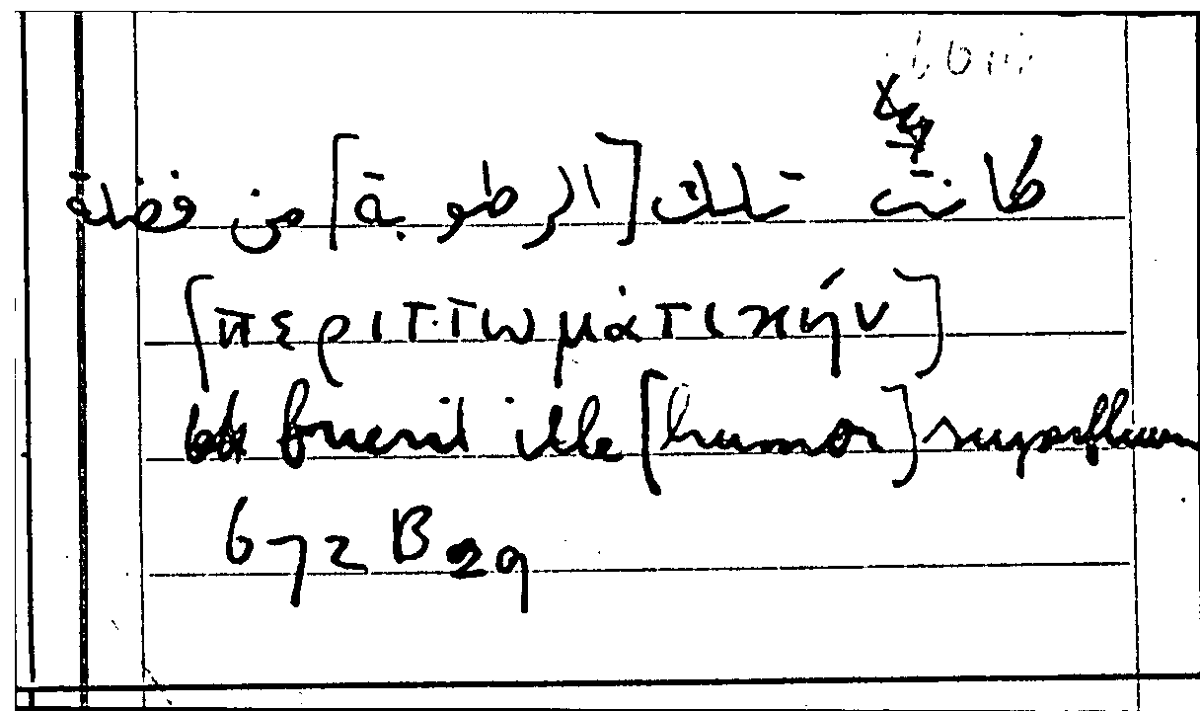 كانت تلك [الرطوبة] من فضلة
[περιττωμάτικήν]
fuerit ille [humor] superfluum
672 B 29